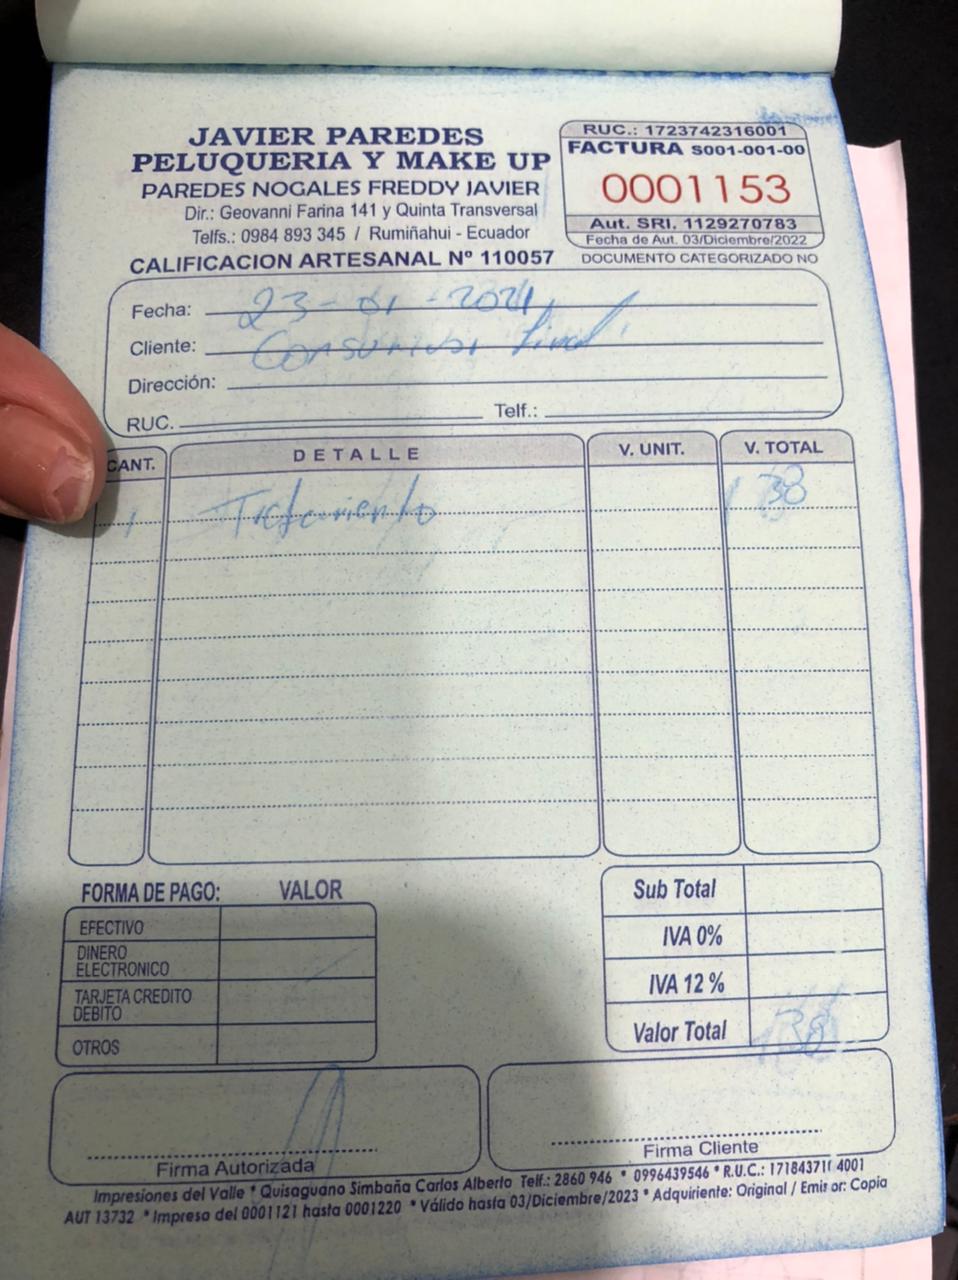 JAVIER PAREDES
PELUQUERIA Y MAKE UP
PAREDES NOGALES FREDDY JAVIER
Dir.: Geovanni Farina 141 y Quinta Transversal
Telfs.: 0984 893 345 / Rumiñahui - Ecuador
CALIFICACION ARTESANAL Nº 110057
RUC.: 1723742316001
FACTURA S001-001-00
0001153
Aut. SRI. 1129270783
Fecha de Aut. 03/Diciembre/2022
DOCUMENTO CATEGORIZADO NO
Fecha: 23-01-2021
Cliente: Consumidor final
Dirección:
RUC. Telf.:
CANT. DETALLE V. UNIT. V. TOTAL
1 Tratamiento 138
FORMA DE PAGO: VALOR
EFECTIVO
DINERO
ELECTRONICO
TARJETA CREDITO
DEBITO
OTROS
Sub Total
IVA 0%
IVA 12 %
Valor Total 138
Firma Autorizada
Firma Cliente
Impresiones del Valle * Quisaguano Simbaña Carlos Alberto Telf.: 2860 946 * 0996439546 * R.U.C.: 4001
AUT 13732 * Impreso del 0001121 hasta 0001220 * Válido hasta 03/Diciembre/2023 * Adquiriente: Original / Emisor: Copia